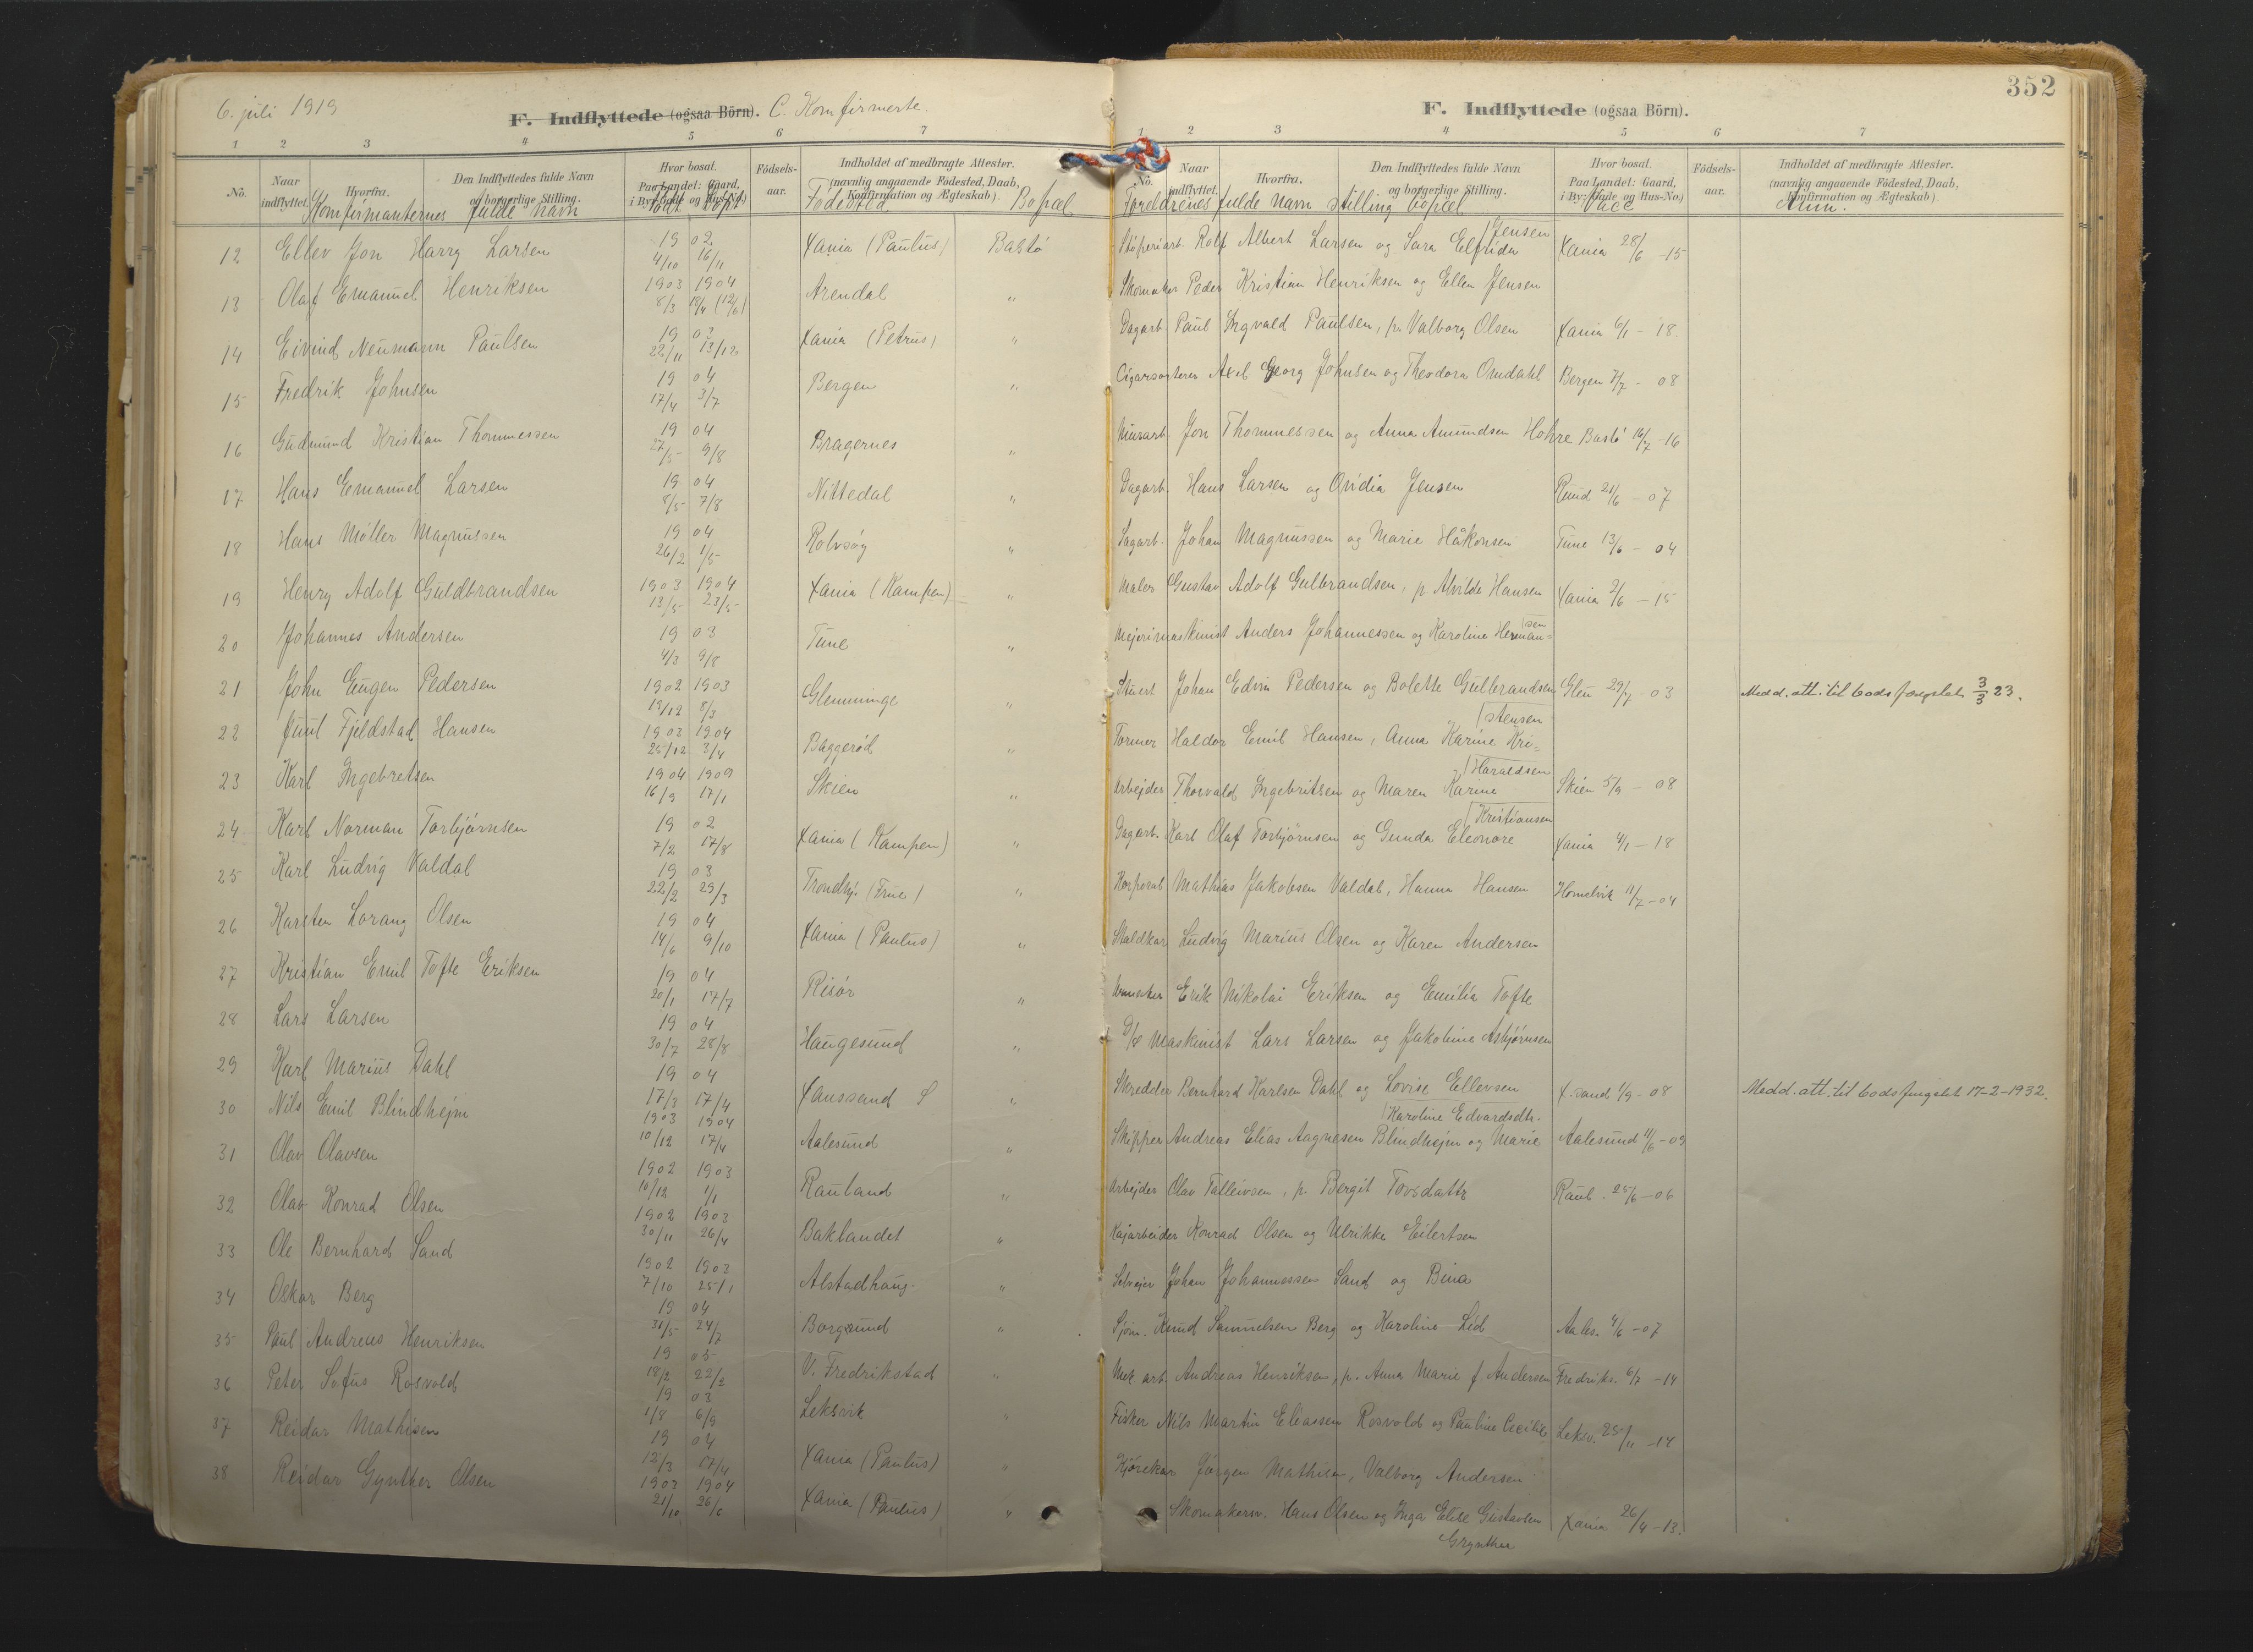 352
6. juli 1919
F. Indflyttede (ogsaa Börn). C. Konfirmerte.
1 2 3 4 5 6 7
No. Naar indflyttet. Hvorfra. Den Indflyttedes fulde Navn og borgerlige Stilling. Hvor bosat. Paa Landet: Gaard, i By: Gade og Hus-No.) Födsels-aar. Indholdet af medbragte Attester. (navnlig angaaende Födested, Daab, Konfirmation og Ægteskab)
Konfirmanternes fulde navn Född Döpt Födested Bopæl
12 Ellev Jon Harry Larsen 1902 4/10 16/11 Xania (Paulus) Bastö
13 Olaf Emanuel Henriksen 1903 8/3 1904 19/4 (12/6) Arendal "
14 Eivind Neumann Paulsen 1902 22/11 13/12 Xania (Petrus) "
15 Fredrik Johnsen 1904 17/4 3/7 Bergen "
16 Gudmund Kristian Thommessen 1904 27/5 9/8 Bragernes "
17 Hans Emanuel Larsen 1904 8/5 7/8 Nittedal "
18 Hans Möller Magnussen 1904 26/2 1/5 Rolvsöy "
19 Henry Adolf Guldbrandsen 1903 13/5 1904 23/5 Xania (Kampen) "
20 Johannes Andersen 1903 4/3 9/8 Tune "
21 John Eugen Pedersen 1902 19/12 1903 8/3 Glemminge "
22 Juul Fjeldstad Hansen 1903 25/12 1904 3/4 Baggeröd "
23 Karl Ingebretsen 1904 16/9 1909 17/1 Skien "
24 Karl Norman Torbjörnsen 1902 7/2 17/8 Xania (Kampen) "
25 Karl Ludvig Valdal 1903 22/2 29/3 Trondhj. (Frue) "
26 Karsten Lorang Olsen 1904 14/6 9/10 Xania (Paulus) "
27 Kristian Emil Tofte Eriksen 1904 20/1 17/7 Risör "
28 Lars Larsen 1904 30/7 28/8 Haugesund "
29 Karl Marius Dahl 1904 17/3 17/4 Xanssand S "
30 Nils Emil Blindhejm 1903 10/12 1904 17/4 Aalesund "
31 Olav Olavsen 1902 10/12 1903 1/1 Rauland "
32 Olav Konrad Olsen 1902 30/11 1903 26/4 Baklandet "
33 Ole Bernhard Sand 1902 7/10 1903 25/1 Alstadhaug. "
34 Oskar Berg 1904 31/5 24/7 Borgsund "
35 Paul Andreas Henriksen 1905 18/2 22/2 V. Fredrikstad "
36 Peter Sofus Rosvold 1903 1/8 6/9 Leksvik "
37 Reidar Mathisen 1904 12/3 17/4 Xania (Paulus) "
38 Reidar Gynther Olsen 1903 21/10 1904 26/6 Xania (Paulus) "
F. Indflyttede (ogsaa Börn).
1 2 3 4 5 6 7
No. Naar indflyttet. Hvorfra. Den Indflyttedes fulde Navn og borgerlige Stilling. Hvor bosat. Paa Landet: Gaard, i By: Gade og Hus-No.) Födsels-aar. Indholdet af medbragte Attester. (navnlig angaaende Födested, Daab, Konfirmation og Ægteskab)
Foreldrenes fulde navn stilling bopæl Vacc Anm.
Jensen
Stöperiarb. Rolf Albert Larsen og Sara Elfrida Xania 28/6 -15
Skomaker Peder Kristian Henriksen og Ellen Jensen
Dagarb. Paul Ingvald Paulsen, p. Valborg Olsen Xania 6/1 - 18.
Axel Georg Johnsen og Theodora Omdahl Bergen 7/7 - 08
Murarb. Jon Thommessen og Anna Amundsen Hohre Bastö 16/7 -16
Dagarb. Hans Larsen og Ovidia Jensen 21/6 - 07
Sagarb. Johan Magnussen og Marie Håkonsen Tune 13/6 - 04
Maler Gustav Adolf Gulbrandsen, p. Alvilde Hansen Xania 2/6 - 15
sen
Mejerimaskinist Anders Johannessen og Karoline Herman=
Stuert Johan Edvin Pedersen og Bolette Gulbrandsen Glem 29/7 - 03 Medd. att. til bodsfængslet 3/3 23.
stensen
Former Haldor Emil Hansen, Anna Karine Kri=
Haraldsen
Arbejder Thorvald Ingebritsen og Maren Karine Skien 5/9 - 08
Kristiansen
Dagarb. Karl Olaf Torbjörnsen og Gunda Eleonore Xania 4/1 - 18
Korporal Mathias Jakobsen Valdal, Hanna Hansen Hommelvik 11/7 -04
Staldkar Ludvig Marius Olsen og Karen Andersen
Erik Nikolai Eriksen og Emilia Tofte
D/s Maskinist Lars Larsen og Jakobine Asbjörnsen
Skredder Bernhard Karlsen Dahl og Lovise Ellevsen X.sand 1/9 - 08 Medd. att. til bodsfengslet 17-2-1932.
Karoline Edvardsdtr.
Skipper Andreas Elias Aagnesen Blindhejm og Marie Aalesund 11/6 -09
Arbejder Olav Talleivsen, p. Bergit Tovsdattr Raul. 25/6 -06
Kajarbeider Konrad Olsen og Ulrikke Eilertsen
Selvejer Johan Johannessen Sand og Bina
Sjöm. Knud Samuelsen Berg og Karoline Lid Aales. 4/6 -07
Mek arb. Andreas Henriksen, p. Anna Marie f. Andersen Fredriks. 6/7 -14
Fisker Nils Martin Eleassen Rosvold og Pauline Cecilie Leksv. 25/11 -14
Kjörekar Jörgen Mathisen, Valborg Andersen
Skomakersv. Hans Olsen og Inga Elise Gustavsen Xania 26/4 -13.
Grynther